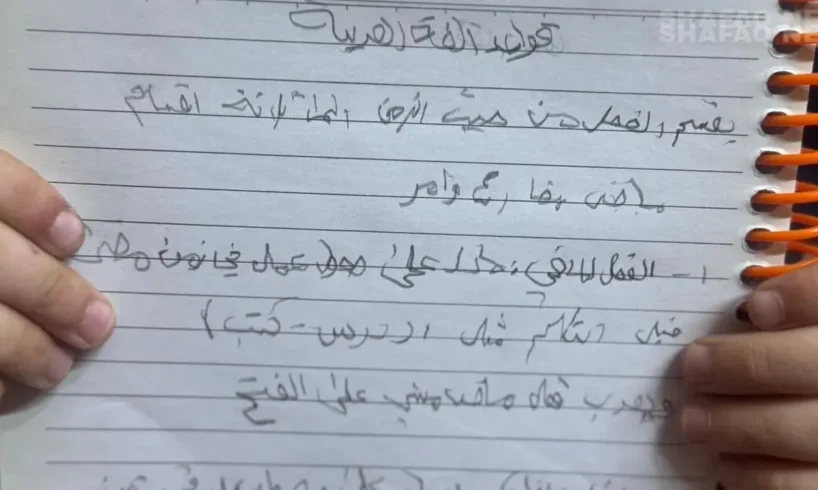 SHAFAQ NE
قواعد اللغة العربية
يقسم الفعل من حيث الزمن الى ثلاثة اقسام
ماضي مضارع وامر
١- الفعل الماضي: يدل على عمل في زمن مضى
قبل التكلم مثل (درس - كتب)
ويعرب فعل ماضي مبني على الفتح